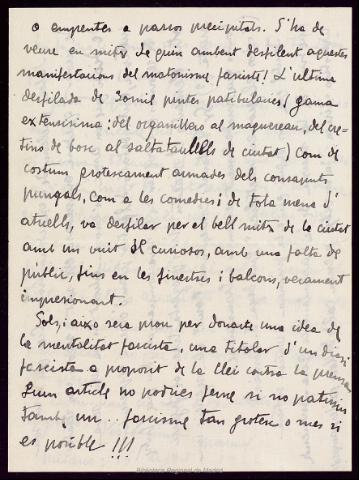 o empentes a passos precipitats. S'ha de
veure en mitx de quin ambent desfilent aquestes
manifestacions del matonisme fasciste! L'ultima
desfilada de 30 mil pintes patibularies (gama
extensisima: del organillero al maquereau, del cre-
tino de bosc al saltataulells de ciutat) com de
costum grotescament armades dels consavuts
punyals, com a les comedies i de tota mena d'
atuells, va desfilar per el bell mitx de la ciutat
amb un vuit de curiosos, amb una falta de
public, fins en les finestres i balcons, verament
impresionant.
Sols, i aixo sera prou per donarte una idea de
la mentalitat fascista, una titolar d'un diari
fascista a proposit de la llei contra la prensa
Quin article no podries ferne si no patissin
també un .. farcisme tan grotesc o mes si
es posible!!!
Biblioteca Regional de Madrid